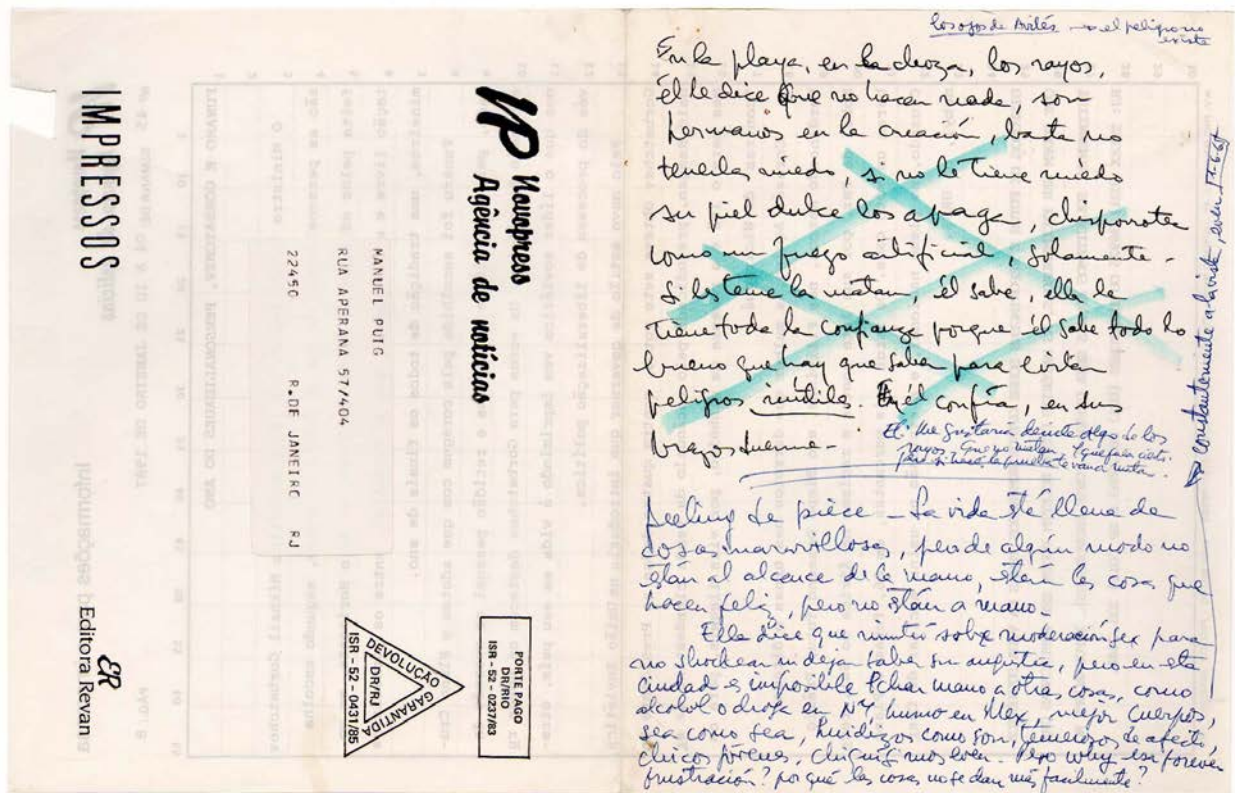 IMPRESSOS
Editora Revan
Novopress
Agência de notícias
MANUEL PUIG
RUA APERANA 57/404
22450 R.DE JANEIRO RJ
PORTE PAGO
DR/RIO
ISR - 52 - 0237/83
DEVOLUÇÃO
GARANTIDA
DR/RJ
ISR - 52 - 0431/85
los ojos de Avilés → el peligro no
existe
En la playa, en la choza, los rayos,
él le dice que no hacen nada, son
hermanos en la creación, basta no
tenerles miedo, si no le tiene miedo
su piel dulce los apaga, chisporrotea
como un fuego artificial, solamente -
Si les teme la matan, él sabe, ella le
tiene toda la confianza porque él sabe todo lo
bueno que hay que saber para evitar
peligros inútiles. En él confía, en sus
brazos duerme -
El: Me gustaría decirte algo de los
rayos. Que no matan, y que fuera cierto.
Pero si hacés la prueba te van a matar.
constantemente a la vista, even
feeling de pièce - La vida está llena de
cosas maravillosas, pero de algún modo no
están al alcance de la mano, están las cosas que
hacen feliz, pero no están a mano -
Ella dice que mintió sobre moderación sex para
no shockear ni dejar saber su angustia, pero en esta
ciudad es imposible echar mano a otras cosas, como
alcohol o droga en NY, humo en Mex, mejor cuerpos,
sea como sea, huidizos como son, temerosos de afecto,
chicos jóvenes, chiquilines even. Pero why esa forever
frustración? por qué las cosas no se dan más facilmente?